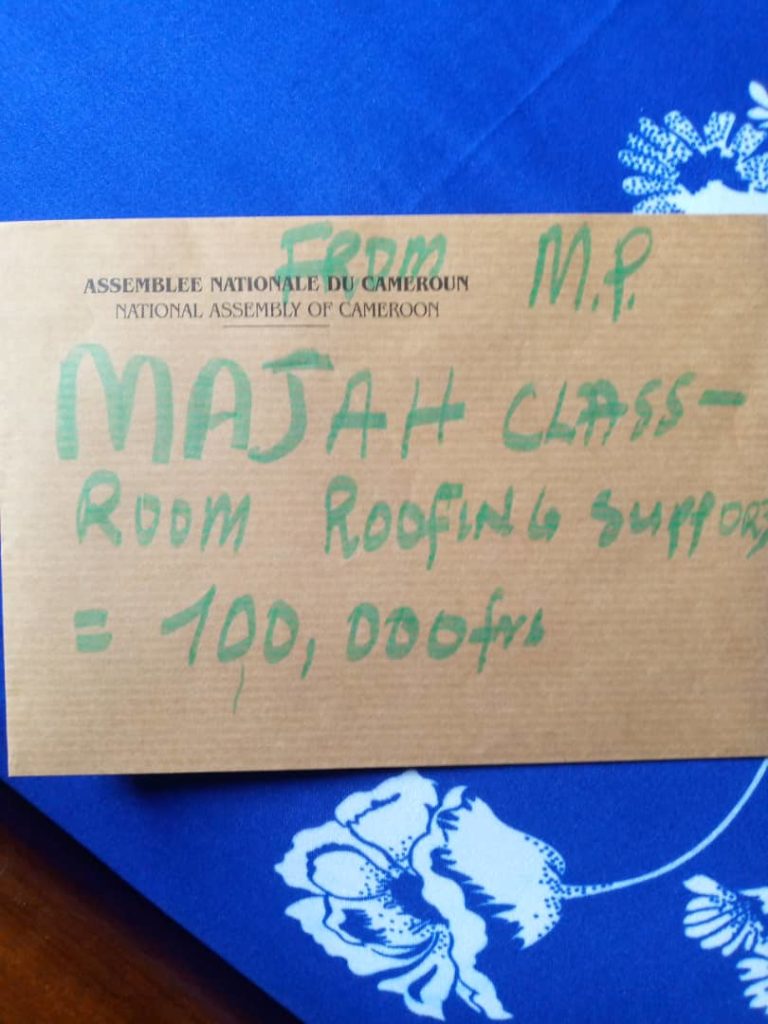 FROM M.P.
ASSEMBLEE NATIONALE DU CAMEROUN
NATIONAL ASSEMBLY OF CAMEROON
MAJAH CLASS-
ROOM ROOFING SUPPORT
= 100,000frs